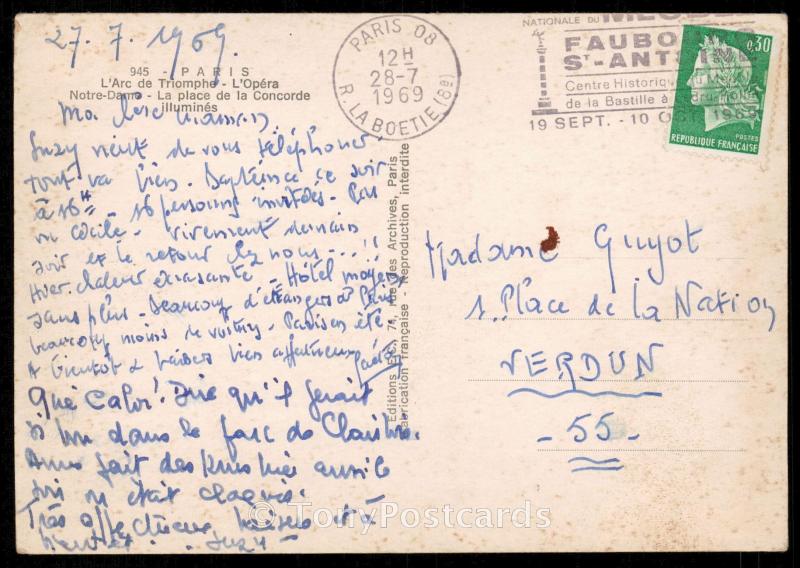 27.7.1969.
945 - PARIS
L'Arc de Triomphe - L'Opéra
Notre-Dame - La place de la Concorde
illuminés
Ma chère maman,
Suzy vient de vous téléphoner
tout va bien. Baptême ce soir
à 16H - 16 personnes invitées. Pas
vu Cécile. Vivement demain
soir et le retour chez nous....!!
Hier chaleur écrasante - Hôtel moyen
sans plus - Beaucoup d'étrangers à Paris
beaucoup moins de voitures - Paris en été.
A bientôt & baisers bien affectueux
Qué Calor! Dire qu'il ferait
si bon dans le parc de
fait des kms hier aussi le
soir était
Très affectueux baisers et à
bientôt Suzy
Editions E.C., 74, rue des Archives, Paris
Fabrication Française Reproduction interdite
PARIS 08
12H
28-7
1969
R. LA BOETIE (8e)
NATIONALE DU
FAUBO
ST-ANTOINE
Centre Historique
de la Bastille à
19 SEPT. - 10 OCT. 1969
0,30
POSTES
REPUBLIQUE FRANÇAISE
Madame Guyot
1. Place de la Nation
VERDUN
- 55 -
© TonyPostcards